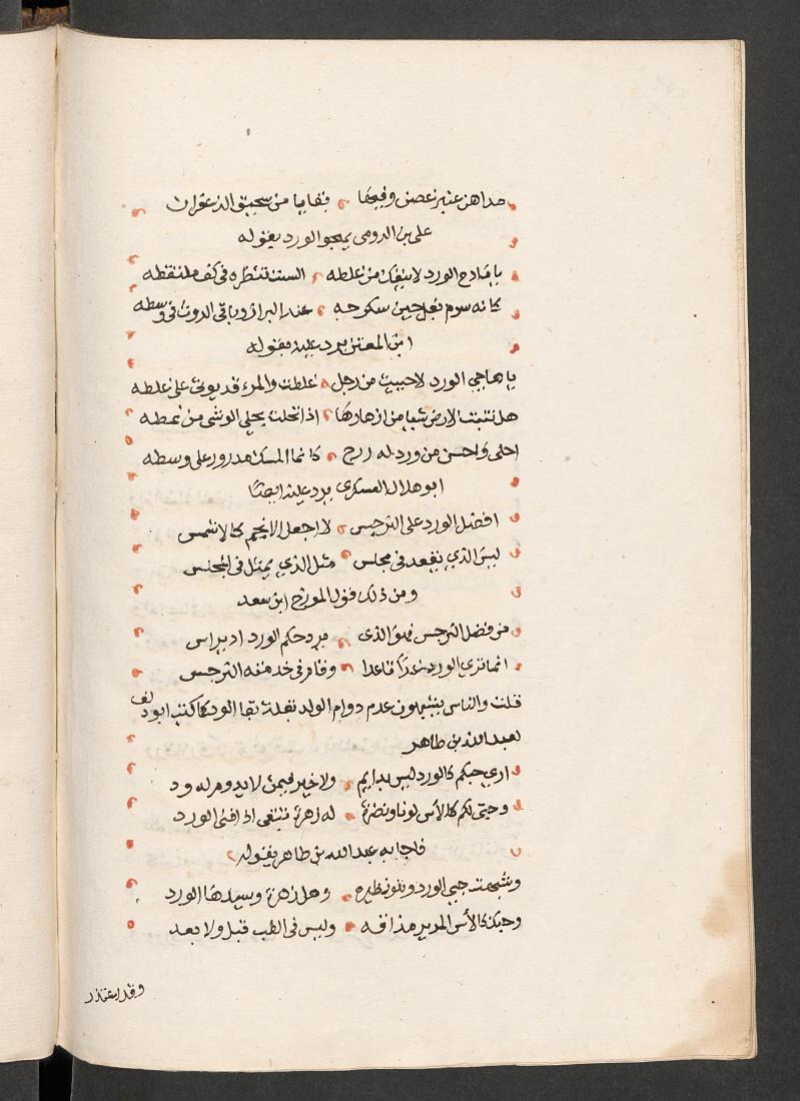 مداهن عنبر غصن وفيها بقايا من سحيق الزعفران
على بن الرومى يهجو الورد بقوله
يا مادح الورد لا ينفك من غلطه الست تنظره فى كف ملتقطه
كانه سرم بغل حين سكرجه عند البراز وباقى الروث فى وسطه
ابن المعتز يرد عليه بقوله
يا هاجى الورد لا حييت من رجل غلطت والمرء قد يوتى على غلطه
هل تنبت الارض شيا من ازهارها اذا تحلت بحلى الوشى من نمطه
احلى واحسن من ورد له ارج كانما المسك مدرور على وسطه
ابو هلال العسكرى يرد عليه ايضا
افضل الورد على النرجس لا اجعل الانجم كالاشمس
ليس الذى يقعد فى مجلس مثل الذى يمثل فى المجلس
ومن ذلك قول المورخ ابن سعد
من فضل النرجس فهو الذى يرد حكم الورد اد يراس
انما ترى الورد غدا قاعدا وقام فى خدمته النرجس
قلت والناس يشبهون عدم دوام الولد بقلة بقا الورد كما كتب ابو دلف
لعبد الله بن طاهر
ارى حبكم كالورد ليس بدايم ولا خير فيمن لا يدوم له ود
وحبى لكم كالأس لونا ونضرة له زهرة تبقى اذا فنى الورد
فاجابه عبد الله بن طاهر بقوله
وشبهت حبى الورد وهو نظيره وهل زهرة وسيدها الورد
وحبك كالأس المرير مذاقه وليس فى الطيب قبل ولا بعد
وقد اعتذر